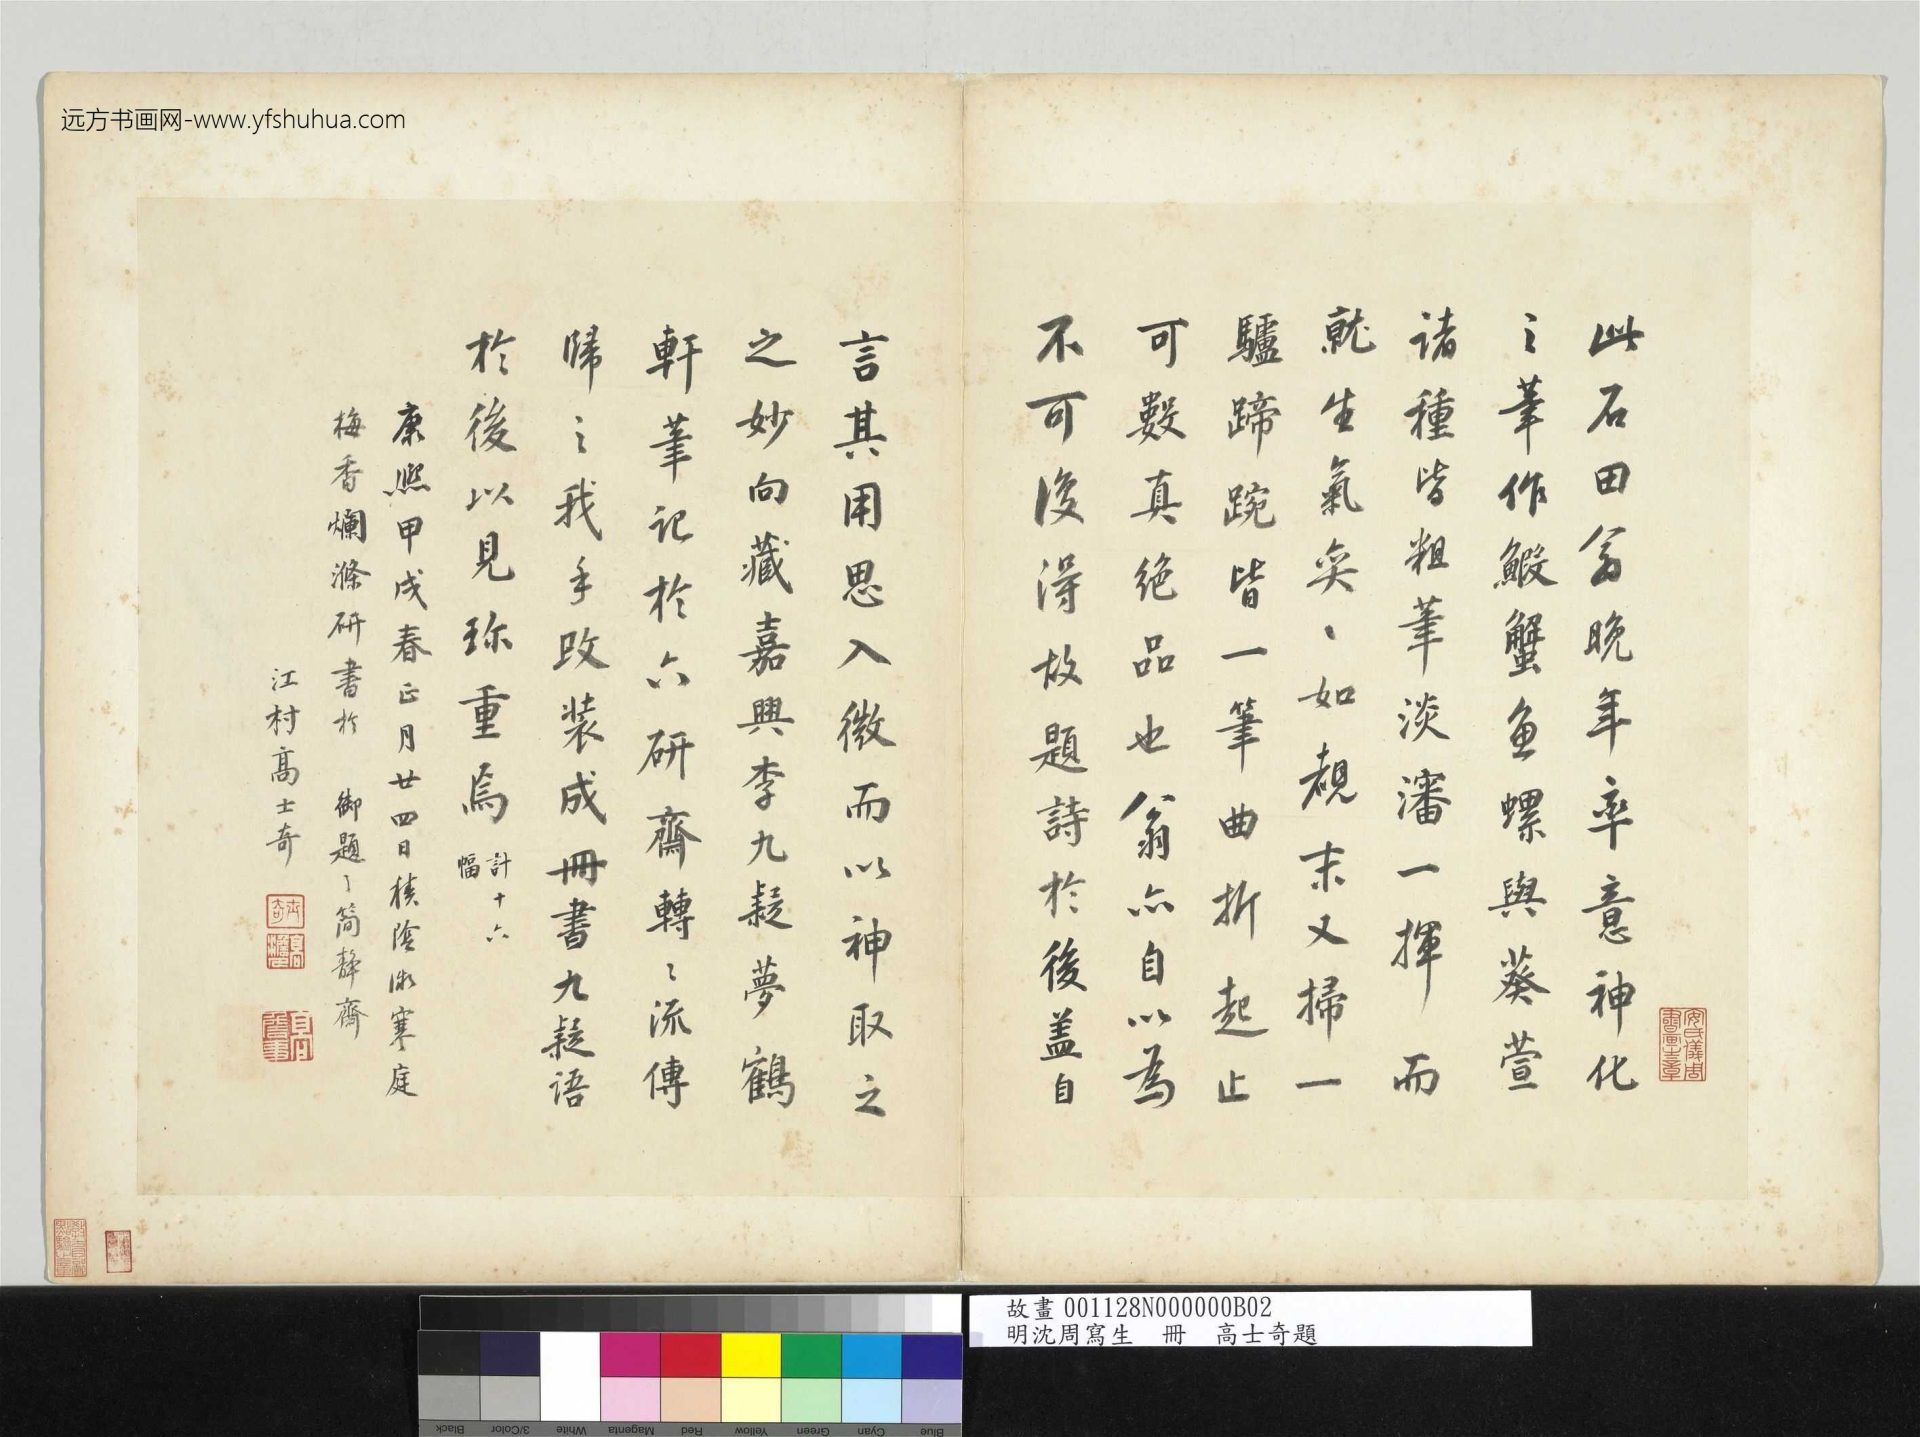 远方书画网-www.yfshuhua.com
此石田翁晚年率意神化
之筆作鰕蟹魚螺與葵萱
諸種皆粗筆淡瀋一揮而
就生氣奕〻如覩末又掃一
驢蹄踠皆一筆曲折起止
可數真絕品也翁亦自以為
不可復得故題詩於後盖自
言其用思入微而以神取之
之妙向藏嘉興李九疑夢鶴
軒筆記於六研齋轉〻流傳
歸之我手改装成冊書九疑語
於後以見珎重焉 計十六幅
康熙甲戌春正月廿四日積陰漸寒庭
梅香爛滌研書於 御題〻簡靜齋
江村高士奇
安氏儀周書畫之章
故畫 001128N000000B02
明沈周寫生 冊 高士奇題
Black
3/Color
White
Magenta
Red
Yellow
Green
Cyan
Blue